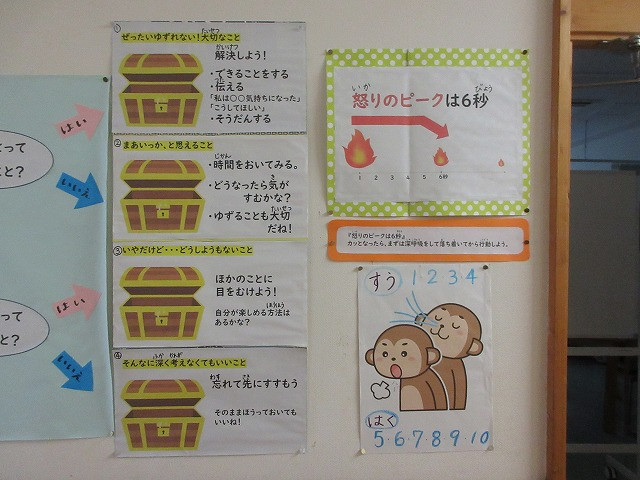 って
と？
はい
いいえ
と？
はい
いいえ
①
ぜったいゆずれない！大切なこと
解決しよう！
・できることをする
・伝える
「私は〇〇気持ちになった」
「こうしてほしい」
・そうだんする
②
まあいっか、と思えること
・時間をおいてみる。
・どうなったら気が
すむかな？
・ゆずることも大切
だね！
③
いやだけど・・・どうしようもないこと
ほかのことに
目をむけよう！
自分が楽しめる方法は
あるかな？
④
そんなに深く考えなくてもいいこと
忘れて先にすすもう
そのままほうっておいても
いいね！
怒りのピークは6秒
1 2 3 4 5 6秒
『怒りのピークは6秒』
カッとなったら、まずは深呼吸をして落ち着いてから行動しよう。
すう 1 2 3 4
はく
5・6・7・8・9・10